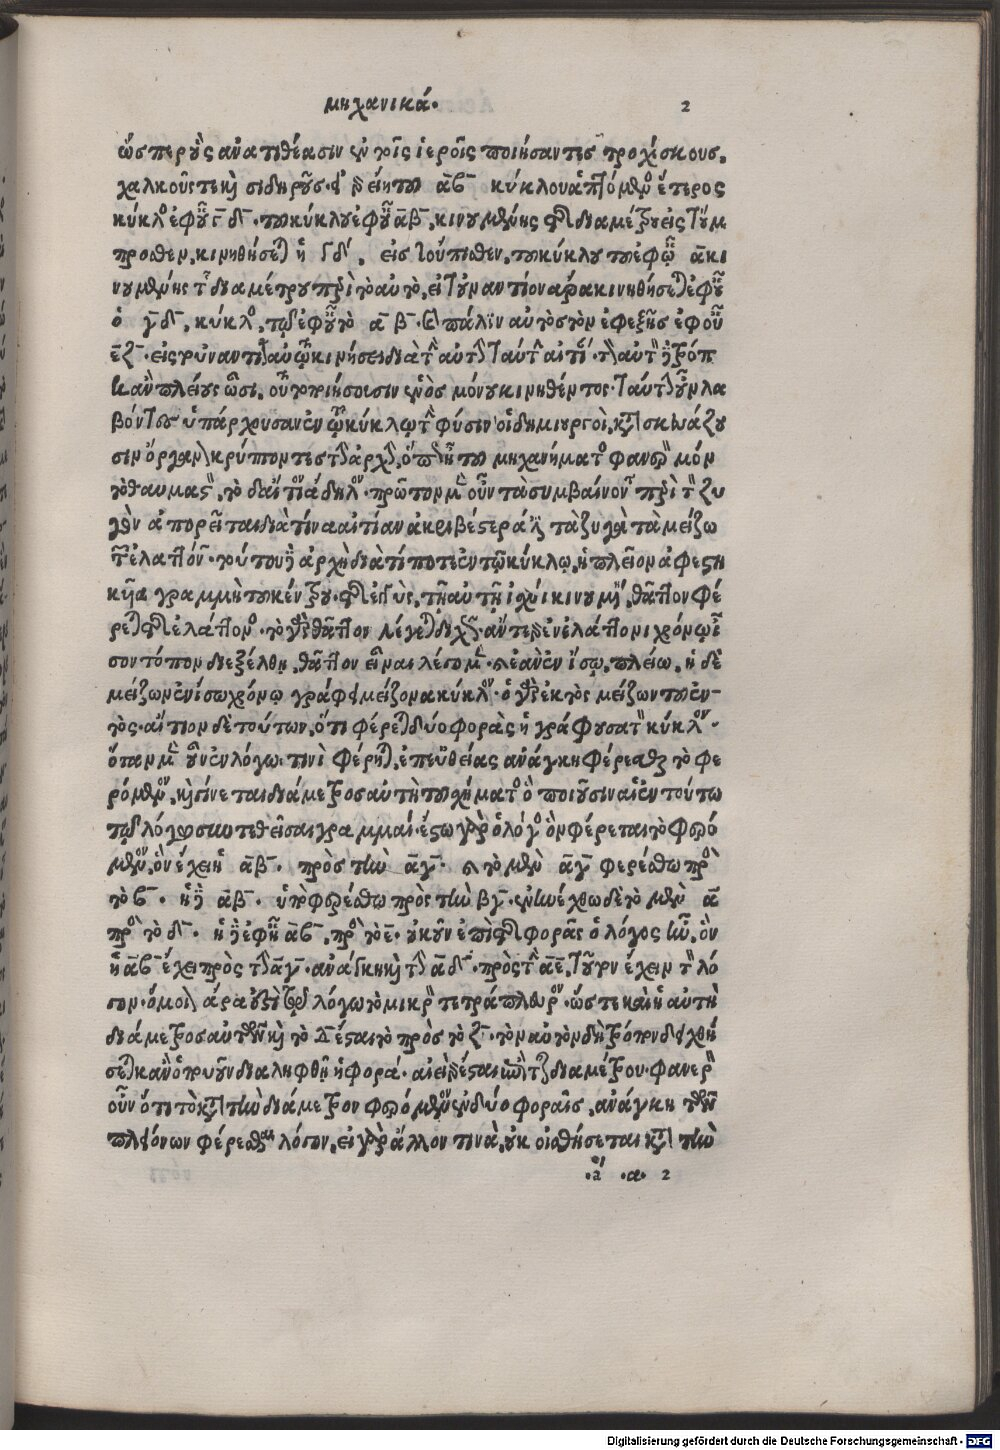 μηχανικά. 2
ὥσπερ οὓς ἀνατιθέασιν ἐν τοῖς ἱεροῖς ποιήσαντες τροχίσκους.
χαλκοῦς τε καὶ σιδηροῦς. εἰ δὲ εἴη τοῦ α̅β̅ κύκλου ἁπτόμενος ἕτερος
κύκλος ἐφ' οὗ γ̅δ̅. τοῦ κύκλου ἐφ' οὗ α̅β̅, κινουμένης τῆς διαμέτρου εἰς τοὔμ
προσθεν, κινηθήσεται ἡ γδ, εἰς τοὔπισθεν, τοῦ κύκλου τοῦ ἐφ' ᾧ α̅ κι
νουμένης τῆς διαμέτρου περὶ τὸ αὐτό, εἰς τοὐναντίον ἄρα κινηθήσεται ἐφ' οὗ
ὁ γ̅δ̅, κύκλος, τῷ ἐφ' οὗ τὸ α̅ β̅. καὶ πάλιν αὐτὸς τὸν ἐφεξῆς ἐφ' οὗ
ε̅ζ̅. εἰς τοὐναντίον αὑτῷ κινήσει διὰ τὴν αὐτὴν ταύτην αἰτίαν. τὸν αὐτὸν δὲ τρόπον
κἂν πλείους ὦσι, τοῦτο ποιήσουσιν ἑνὸς μόνου κινηθέντος. ταύτην οὖν λα
βόντες ὑπάρχουσαν ἐν τῷ κύκλῳ τὴν φύσιν οἱ δημιουργοί, κατασκευάζου
σιν ὄργανον κρύπτοντες τὴν ἀρχήν, ὅπως ᾖ τοῦ μηχανήματος φανερὸν μόνον
τὸ θαυμαστόν, τὸ δ' αἴτιον ἄδηλον. πρῶτον μὲν οὖν τὰ συμβαίνοντα περὶ τὸν ζυ
γὸν ἀπορεῖται διὰ τίνα αἰτίαν ἀκριβέστερά ἐστι τὰ ζυγὰ τὰ μείζω
τῶν ἐλαττόνων. τούτου δὲ ἀρχὴ διὰ τί ποτε ἐν τῷ κύκλῳ, ἡ πλεῖον ἀφεστη
κυῖα γραμμὴ τοῦ κέντρου. τῆς ἐγγὺς, τῇ αὐτῇ ἰσχύι κινουμένη, θᾶττον φέ
ρεται τῆς ἐλάττονος. τὸ γὰρ θᾶττον λέγεται διχῶς. ἄν τε γὰρ ἐν ἐλάττονι χρόνῳ ἴ
σον τόπον διεξέλθῃ, θᾶττον εἶναι λέγομεν. καὶ ἐὰν ἐν ἴσῳ, πλείω, ἡ δὲ
μείζων ἐν ἴσῳ χρόνῳ γράφει μείζονα κύκλον. ὁ γὰρ ἐκτὸς μείζων τοῦ ἐν-
τός. αἴτιον δὲ τούτων, ὅτι φέρεται δύο φορὰς ἡ γράφουσα τὸν κύκλον.
ὅταν μὲν οὖν ἐν λόγῳ τινὶ φέρηται, ἐπ' εὐθείας ἀνάγκη φέρεσθαι τὸ φε
ρόμενον, καὶ γίνεται διάμετρος αὐτὴ τοῦ σχήματος ὃ ποιοῦσιν αἱ ἐν τούτω
τῷ λόγῳ συντεθεῖσαι γραμμαί. ἔστω γὰρ ὁ λόγος ὃν φέρεται τὸ φερό
μενον, ὃν ἔχει ἡ α̅β̅. πρὸς τὴν α̅γ̅. καὶ τὸ μὲν α̅γ̅ φερέσθω πρὸς
τὸ β̅. ἡ δὲ α̅β̅. ὑποφερέσθω πρὸς τὴν βγ̅. ἐνηνέχθω δὲ τὸ μὲν α̅
πρὸς τὸ δ̅. ἡ δὲ ἐφ' ᾗ α̅β̅, πρὸς τὸ ε̅. οὐκοῦν ἐπὶ τῆς φορᾶς ὁ λόγος ἦν, ὃν
ἡ α̅β̅ ἔχει πρὸς τὴν α̅γ̅. ἀνάγκη καὶ τὴν α̅δ̅. πρὸς τὴν α̅ε̅, τοῦτον ἔχειν τὸν λό
γον. ὅμοιον ἄρα ἐστὶ τῷ λόγῳ τὸ μικρὸν τετράπλευρον. ὥστε καὶ ἡ αὐτὴ
διάμετρος αὐτῶν καὶ τὸ Δ ἔσται τὸ πρὸς τὸ ζ̅. τὸν αὐτὸν δὴ τρόπον δειχθή
σεται κἂν ὁπουοῦν διαληφθῇ ἡ φορά. αἰεὶ γὰρ ἔσται ἐπὶ τῆς διαμέτρου. φανερὸν
οὖν ὅτι τὸ κατὰ τὴν διάμετρον φερόμενον ἐν δύο φοραῖς, ἀνάγκη τὸν τῶν
πλευρῶν φέρεσθαι λόγον, εἰ γὰρ ἄλλον τινὰ, οὐκ οἰσθήσεται κατὰ τὴν
.a .α. 2
Digitalisierung gefördert durch die Deutsche Forschungsgemeinschaft - DFG